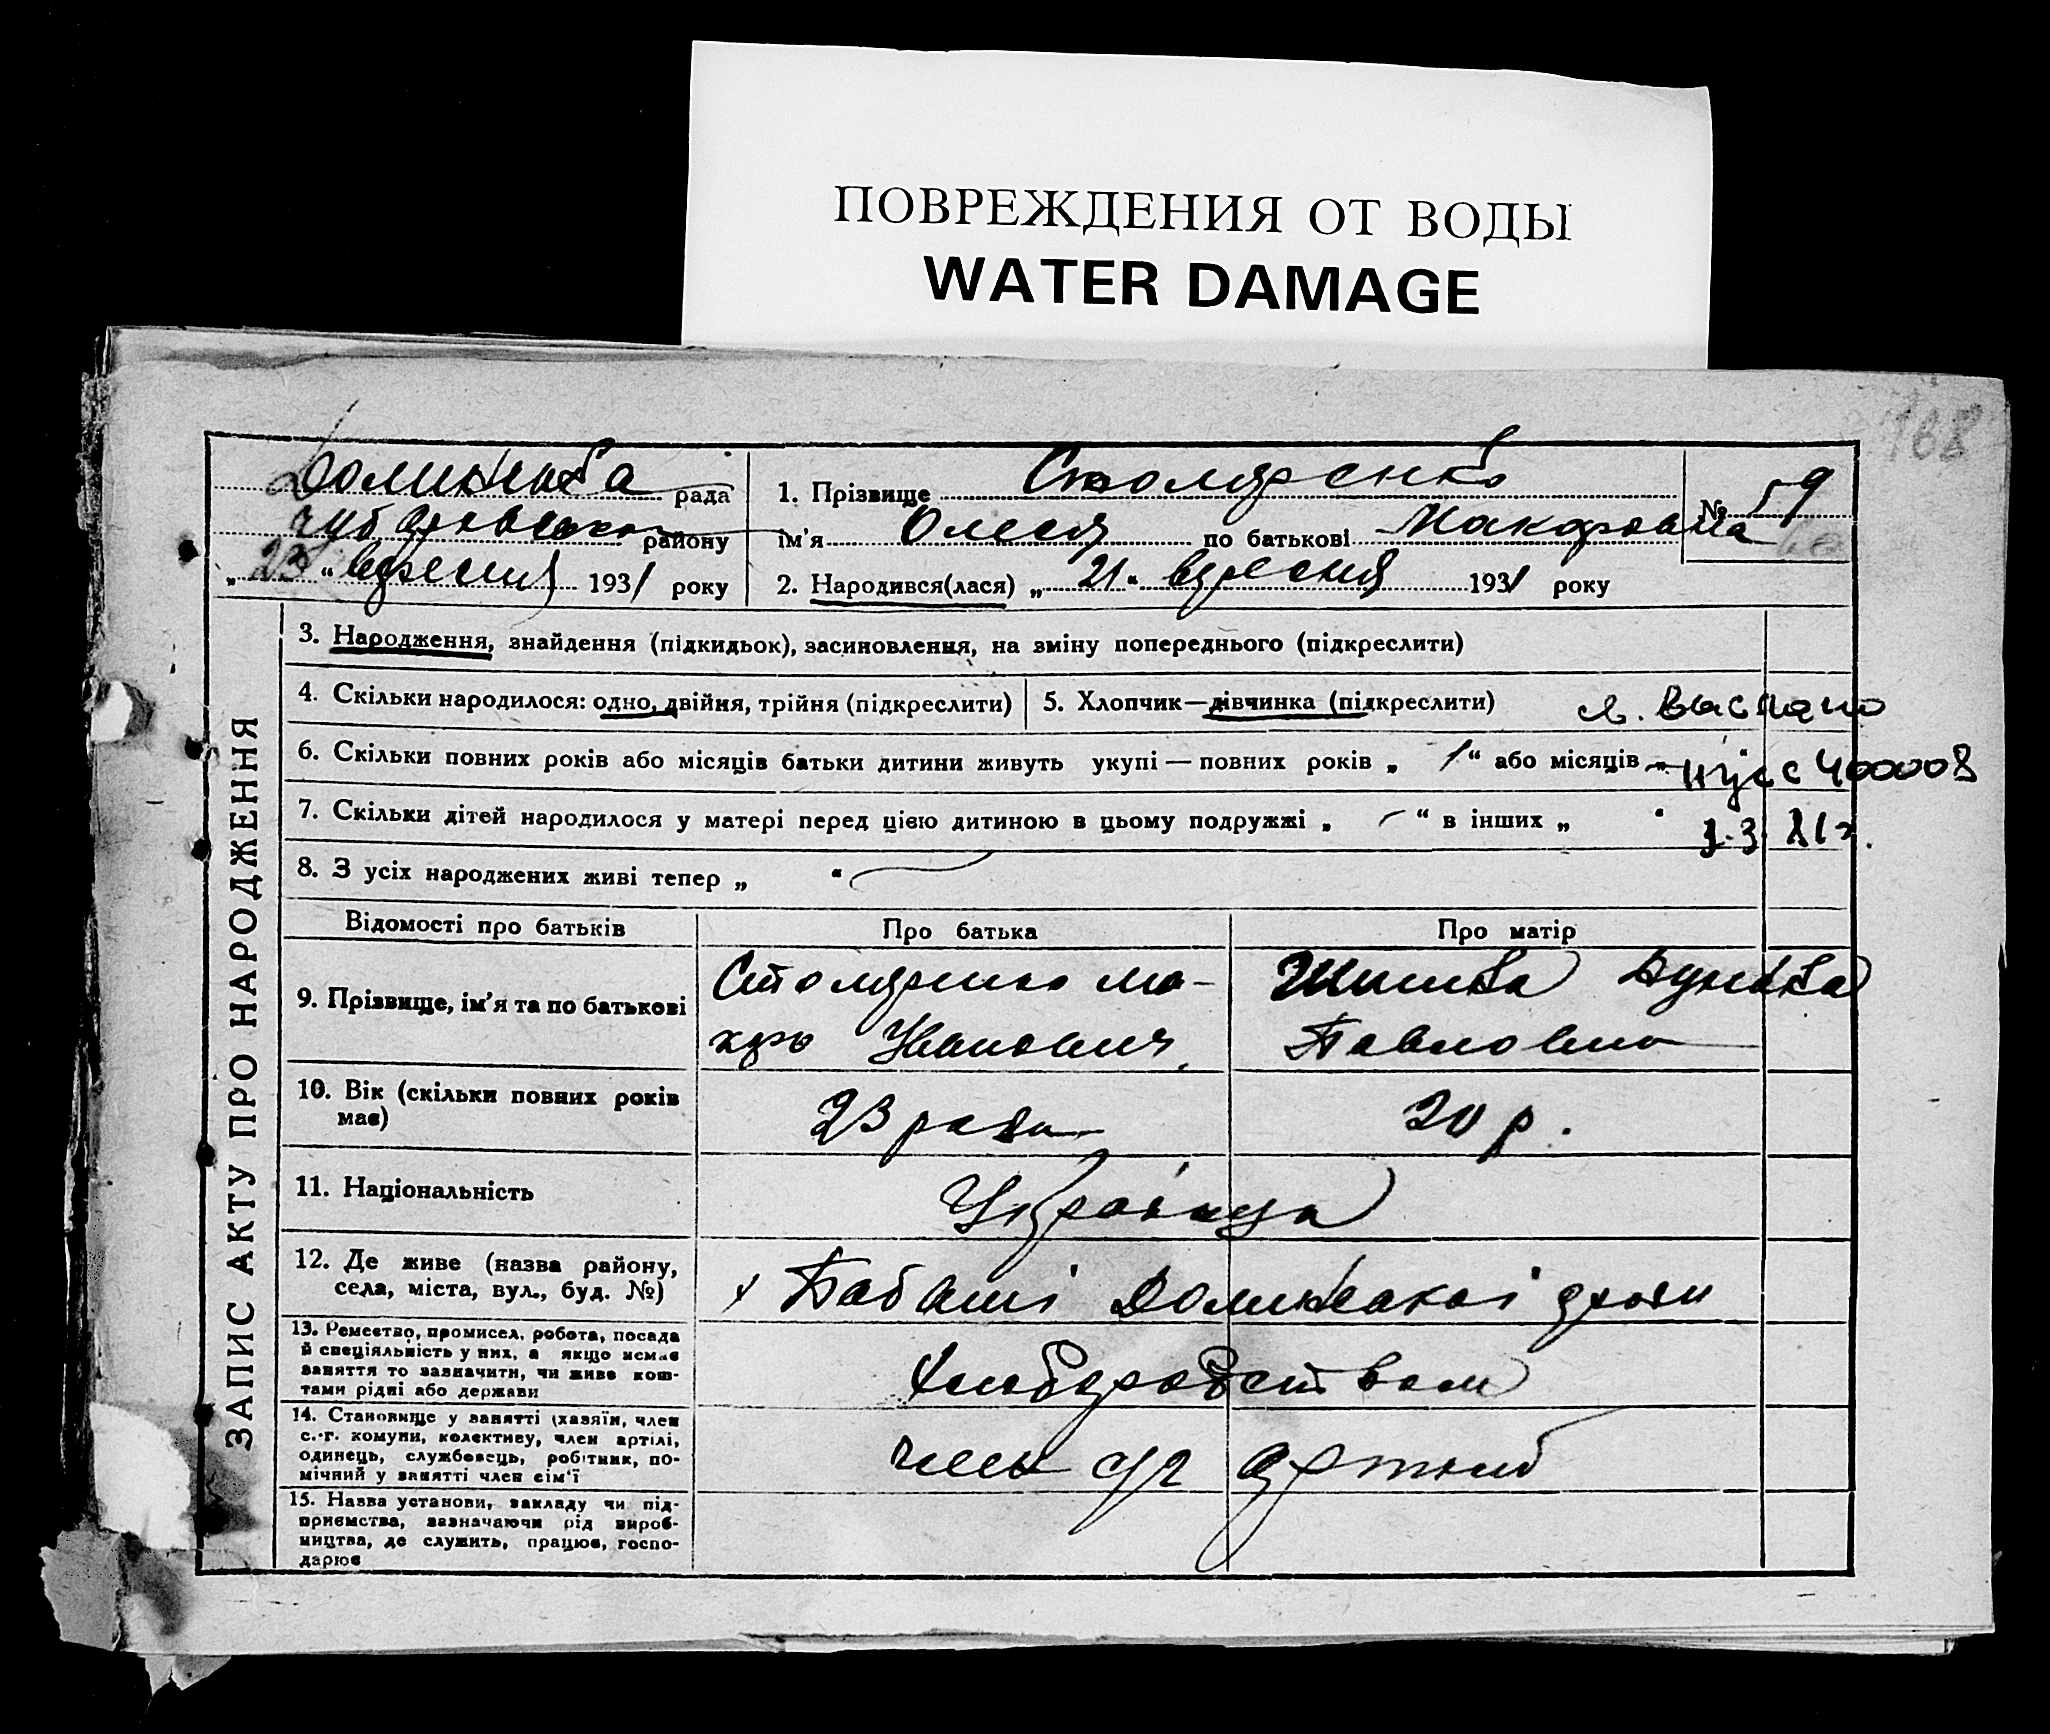 ПОВРЕЖДЕНИЯ ОТ ВОДЫ
WATER DAMAGE
168
Долинська рада
Чубарівського району
„23“ вересня 1931 року
1. Прізвище Столяренко
№ 59
ім'я Олеся по батькові Макаровна
2. Народився(лася) „21“ вересня 1931 року
ЗАПИС АКТУ ПРО НАРОДЖЕННЯ
3. Народження, знайдення (підкидьок), засиновлення, на зміну попереднього (підкреслити)
4. Скільки народилося: одно, двійня, трійня (підкреслити)
5. Хлопчик—дівчинка (підкреслити)
6. Скільки повних років або місяців батьки дитини живуть укупі — повних років „ 1 “ або місяців „
400008
7. Скільки дітей народилося у матері перед цією дитиною в цьому подружжі „ — “ в інших „ “
8. З усіх народжених живі тепер „ “
Відомості про батьків
Про батька
Про матір
9. Прізвище, ім'я та по батькові
Столяренко Ма-
кар Иванович
Павловна
10. Вік (скільки повних років
має)
23 роки
20 р.
11. Національність
Українці
12. Де живе (назва району,
села, міста, вул., буд. №)
Долинської
13. Ремество, промисел, робота, посада
й спеціяльність у них, а якщо немає
заняття то зазначити, чи живе кош-
тами рідні або держави
Хліборобством
14. Становище у занятті (хазяїн, член
с.-г. комуни, колективу, член артілі,
одинець, службовець, робітник, по-
мічний у занятті член сім'ї
член с/г артілі
15. Назва установи, закладу чи під-
приємства, зазначаючи рід вироб-
ництва, де служить, працює, госпо-
дарює